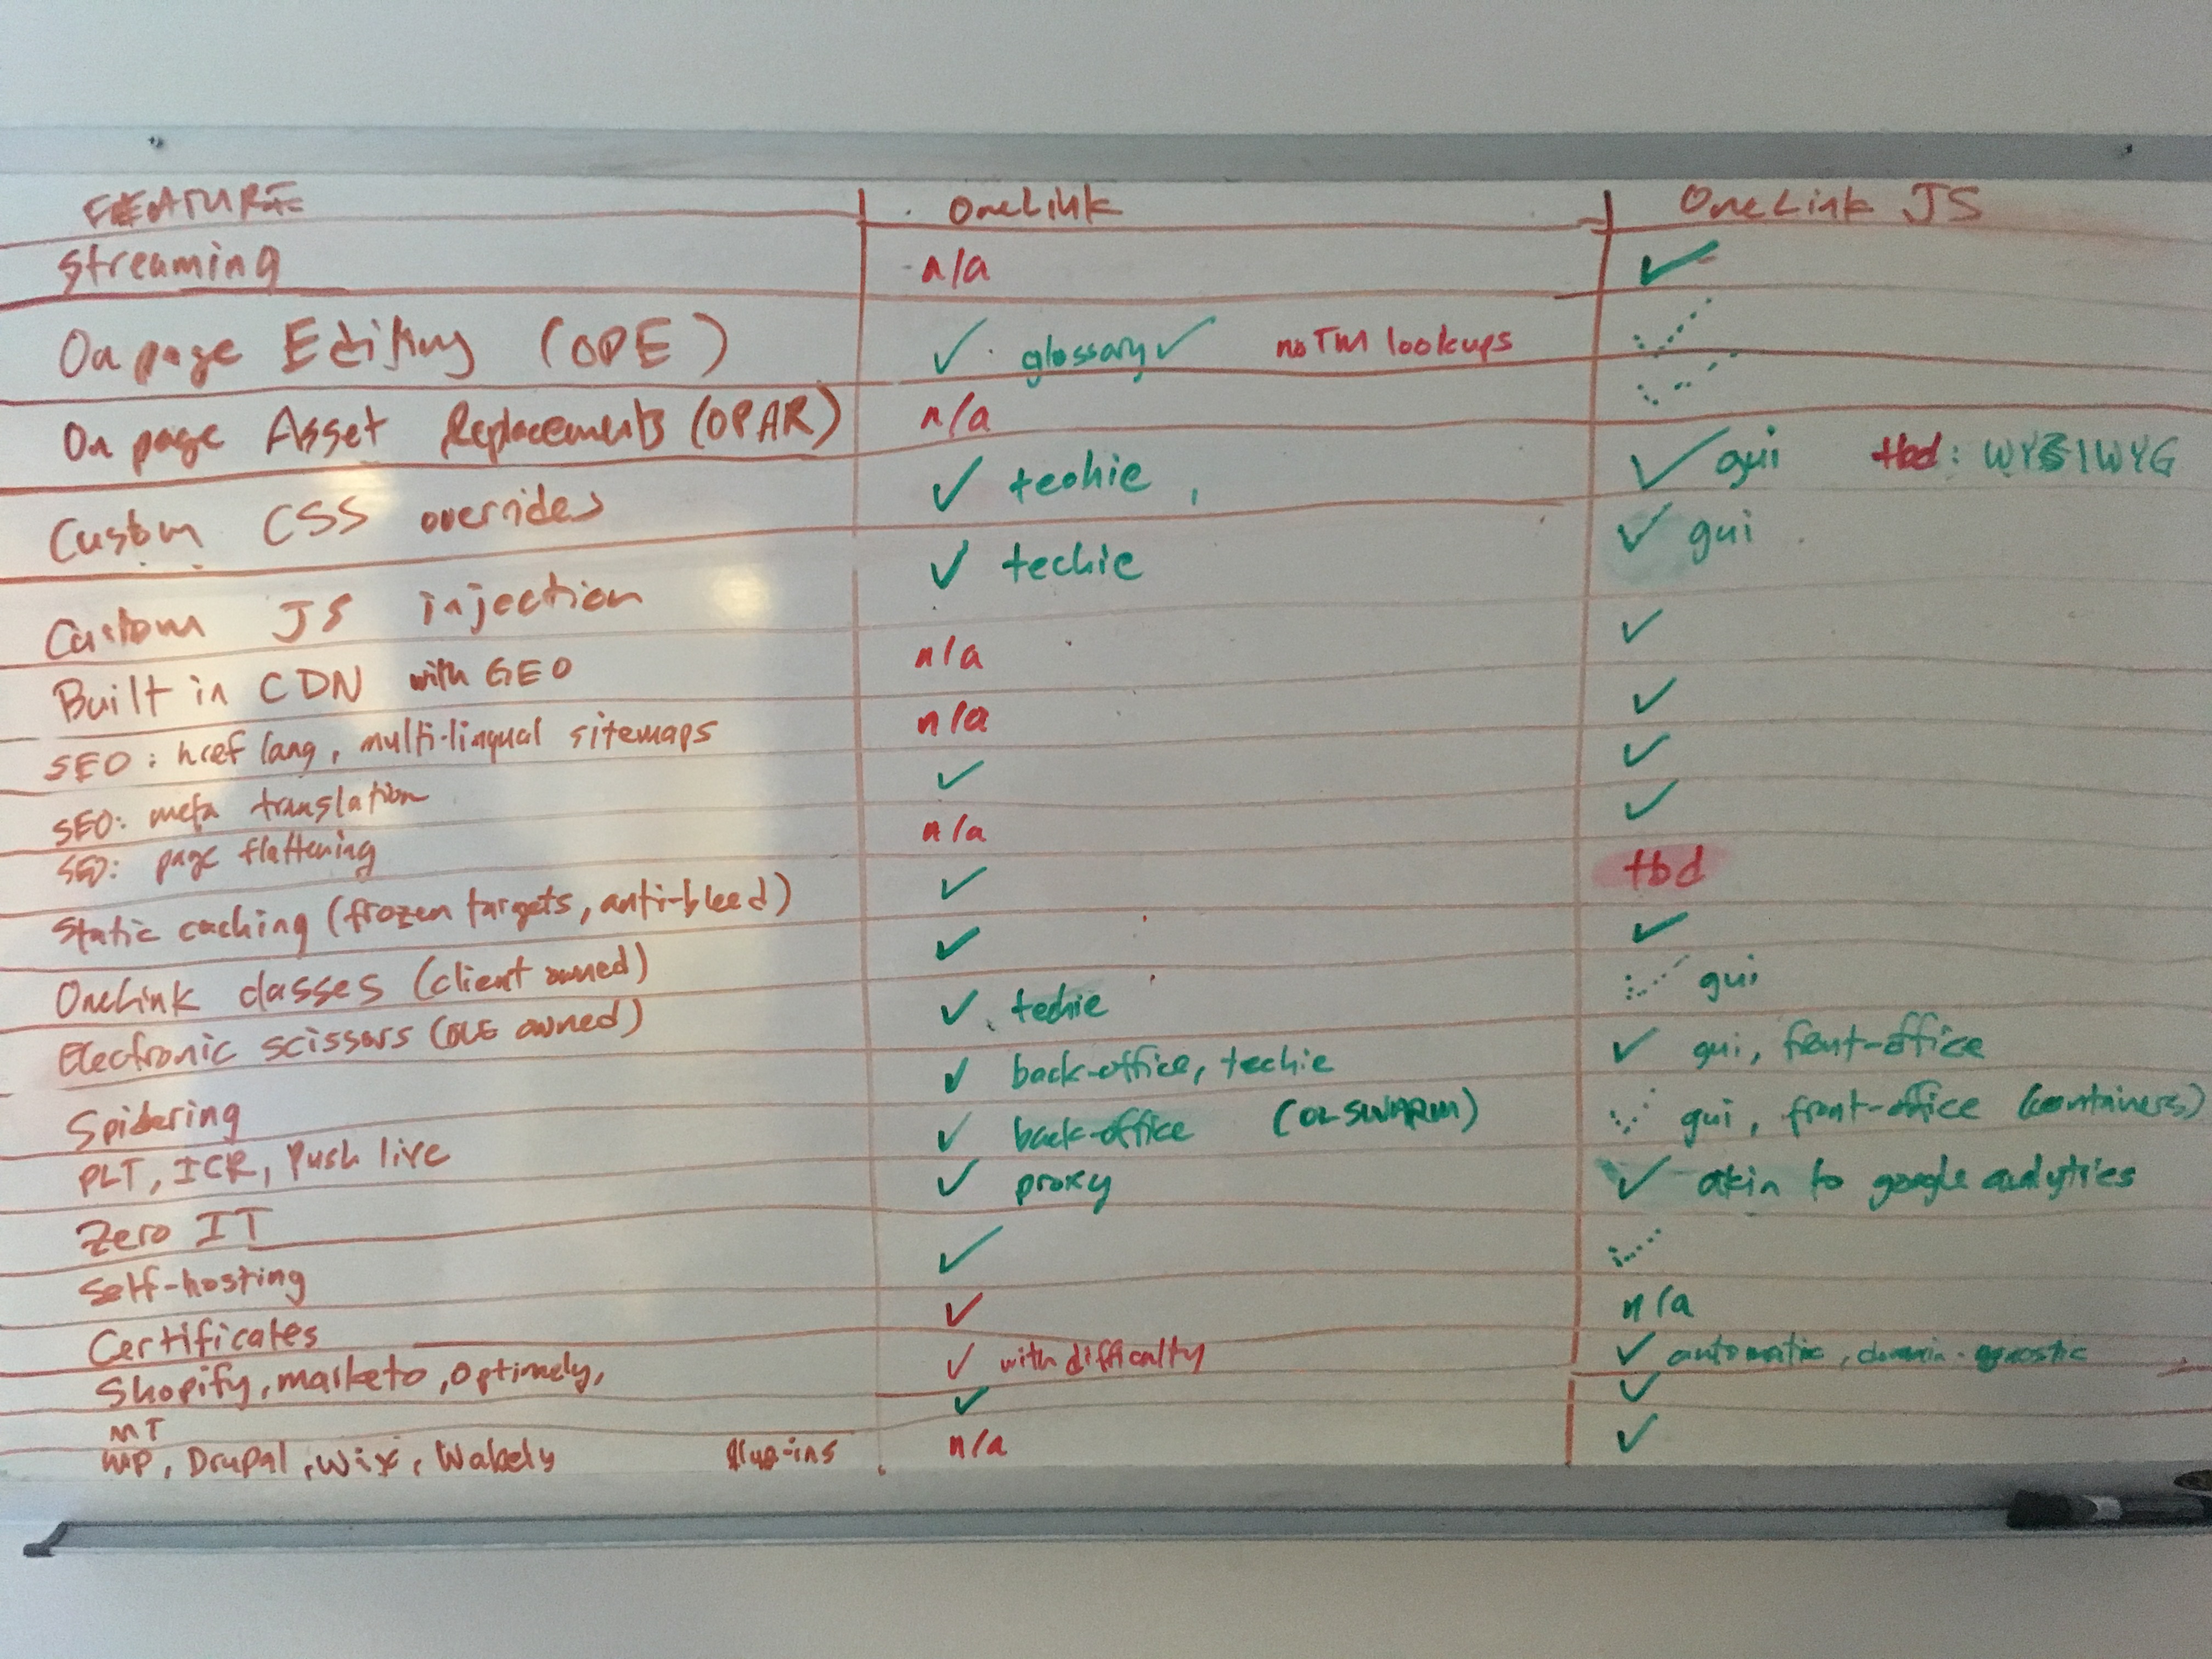 FEATURE OneLink OneLink JS
Streaming n/a ✓
On page Editing (OPE) ✓ glossary ✓ no TM lookups ✓
On page Asset Replacements (OPAR) n/a ✓
Custom CSS overrides ✓ techie ✓ gui tbd: WYSIWYG
Custom JS injection ✓ techie ✓ gui
Built in CDN with GEO n/a ✓
SEO: href lang, multi-lingual sitemaps n/a ✓
SEO: meta translation ✓ ✓
SEO: page flattening n/a ✓
Static caching (frozen targets, anti-bleed) ✓ tbd
OneLink classes (client owned) ✓ ✓
Electronic scissors (OLE owned) ✓ techie ✓ gui
Spidering ✓ back-office, techie ✓ gui, front-office
PLT, ICR, Push live ✓ back-office (OL SWARM) ✓ gui, front-office (containers)
Zero IT ✓ proxy ✓ akin to google analytics
Self-hosting ✓ ✓
Certificates ✓ n/a
Shopify, marketo, Optimely, ✓ with difficulty ✓ automatic, domain-agnostic
MT ✓ ✓
WP, Drupal, Wix, Wakely Plug-ins n/a ✓